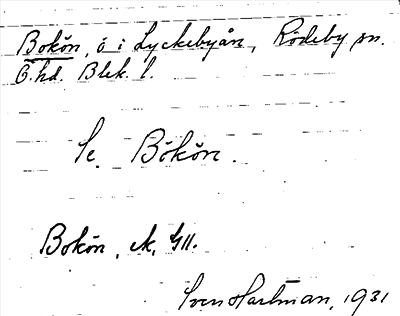 Bokön, ö i Lyckebyån, Rödeby sn.
Ö. hd. Blek. l.
Se Bökön.
Bokön,
Sven Hartman, 1931